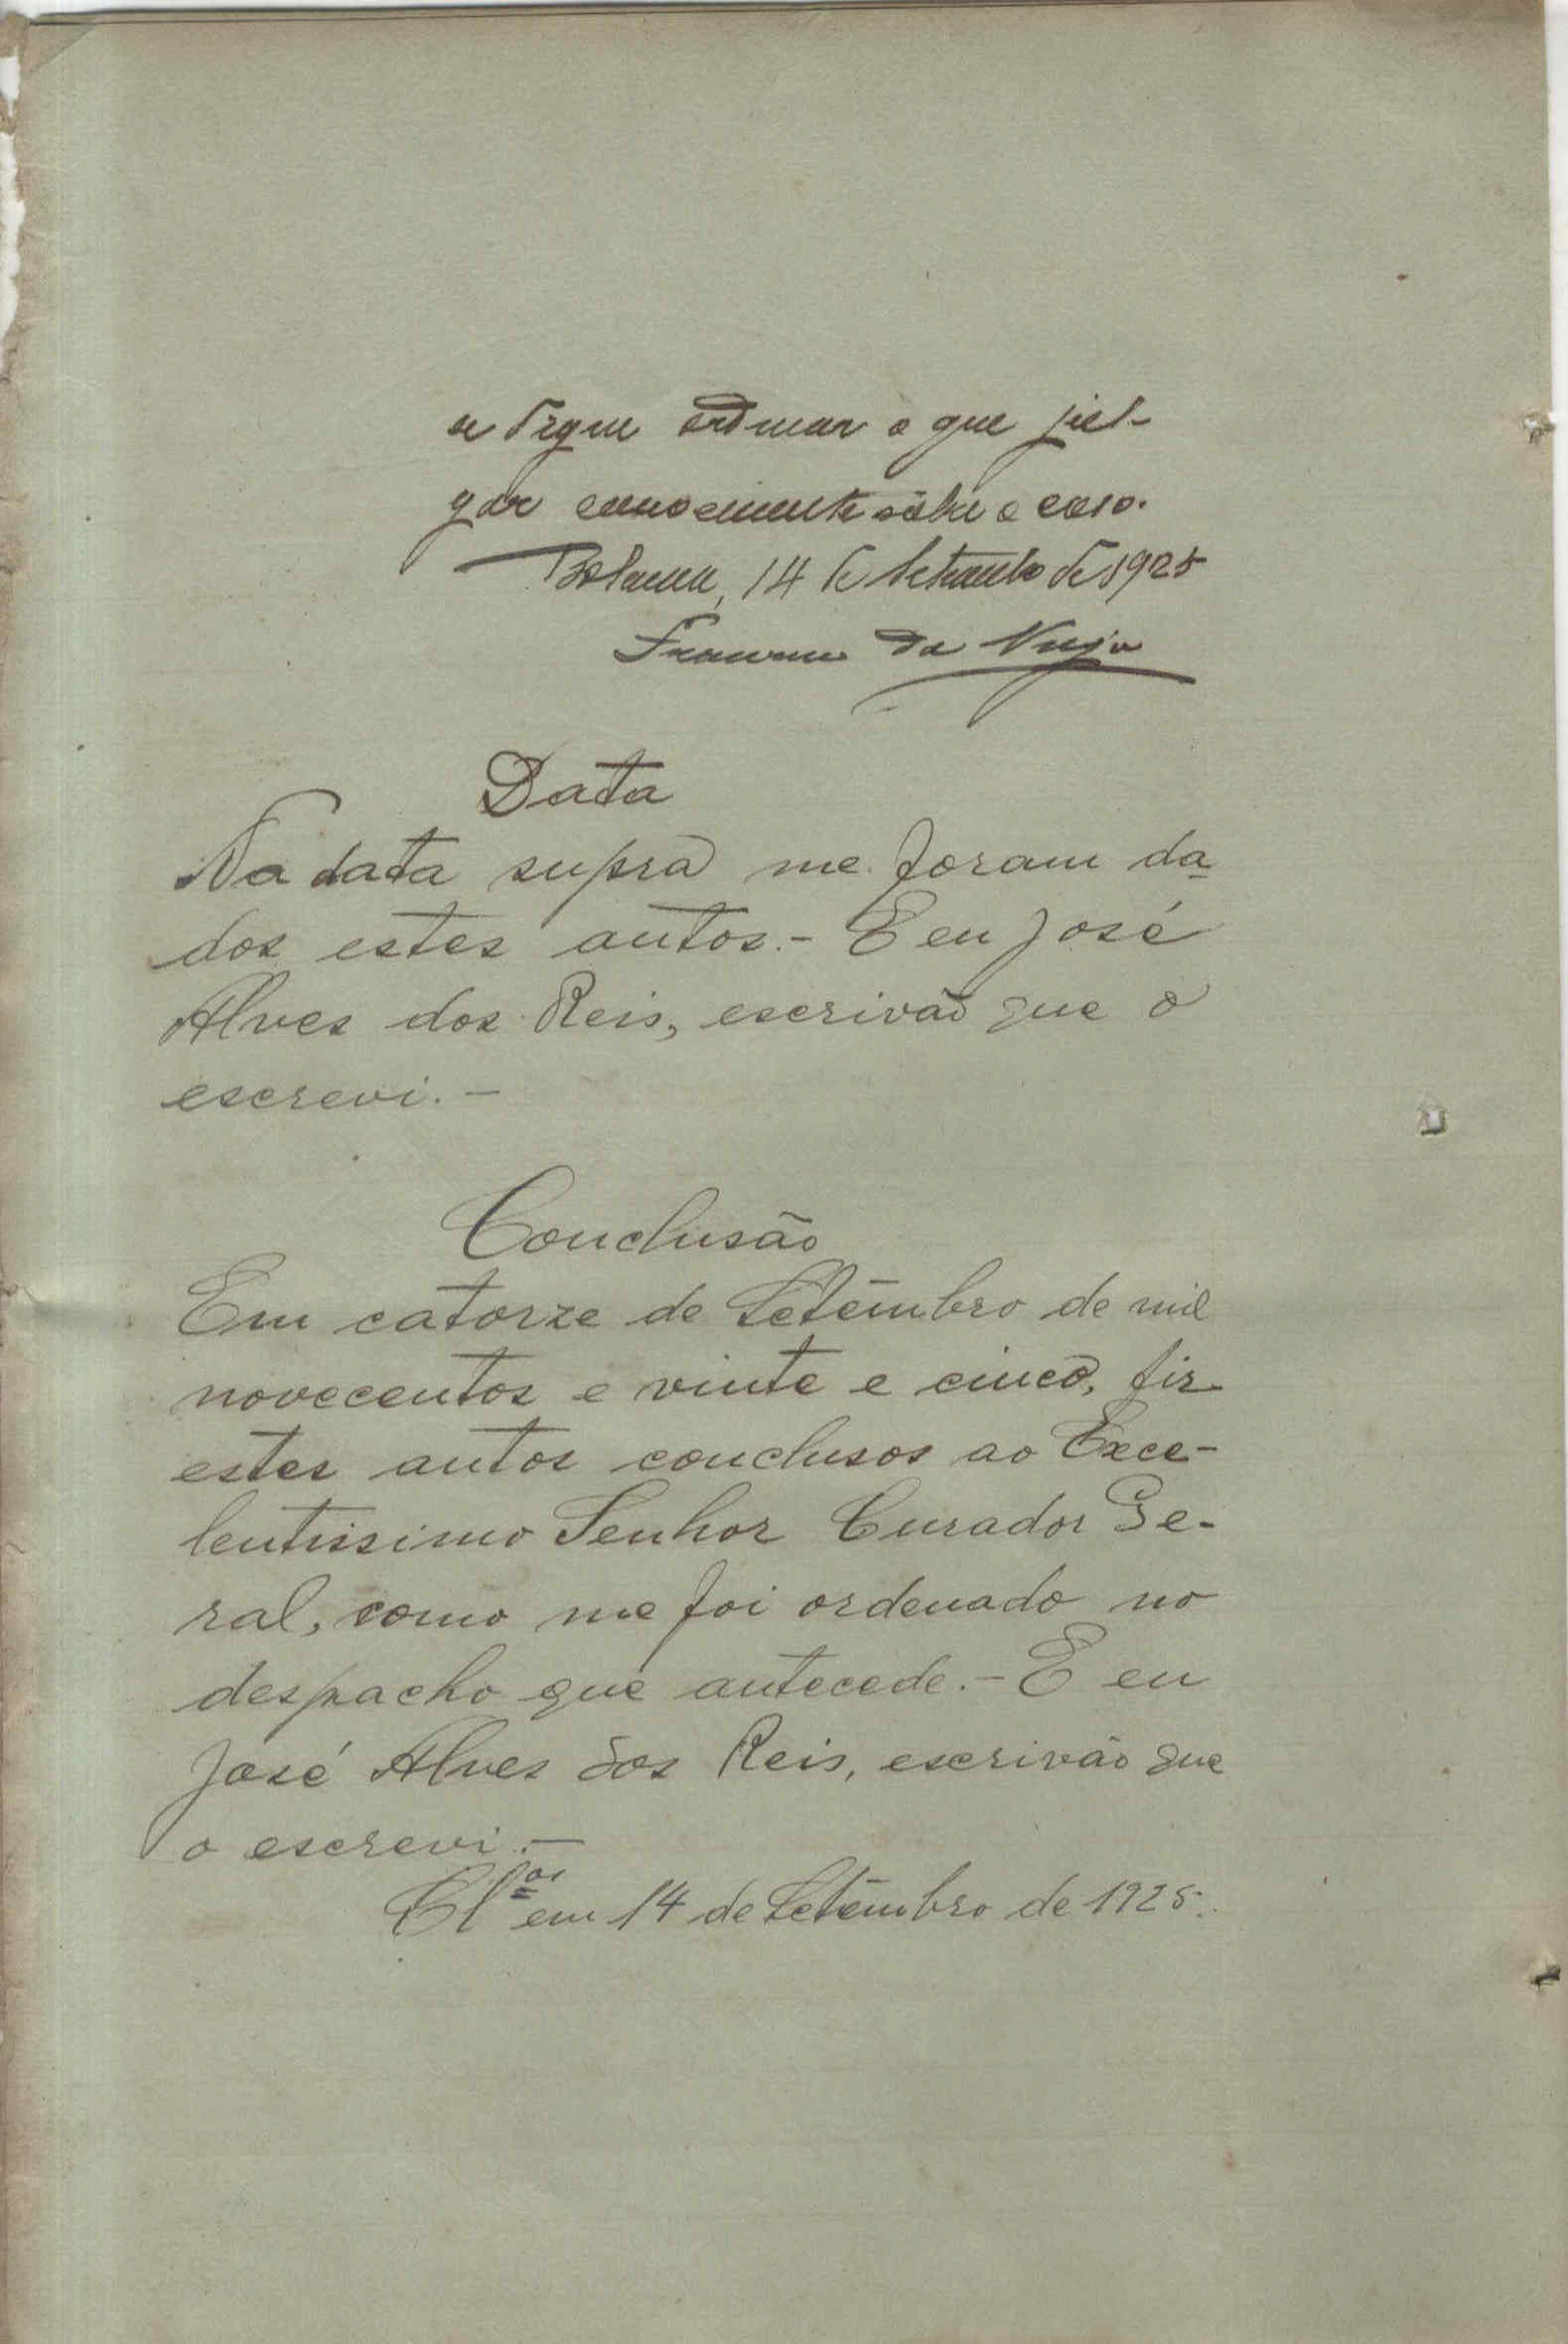 se digne ordenar o que jul-
gar conveniente sôbre o caso.
Bolama, 14 de Setembro de 1925
da
Data
Na data supra me foram da-
dos estes autos.- E eu José
Alves dos Reis, escrivão que o
escrevi.-
Conclusão
Em catorze de Setembro de mil
novecentos e vinte e cinco, fiz
estes autos conclusos ao Exce-
lentissimo Senhor Curador Ge-
ral, como me foi ordenado no
despacho que antecede.- E eu
José Alves dos Reis, escrivão que
o escrevi.-
Cl.os em 14 de Setembro de 1925.